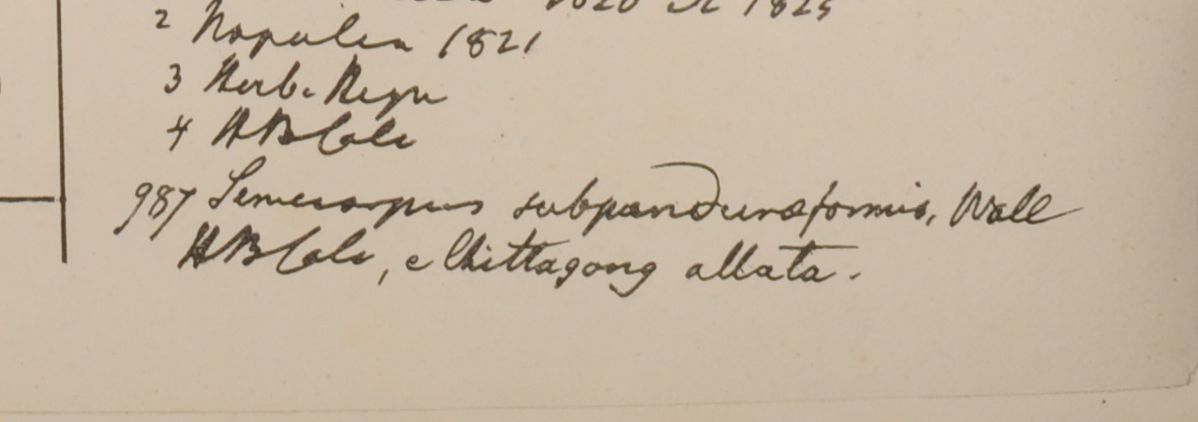 1820 et 1825
2 Napalia 1821
3 Herb. Heyn
4 HBCalc
987 Semecarpus subpanduraeformis, Wall
HBCalc, e Chittagong allata.